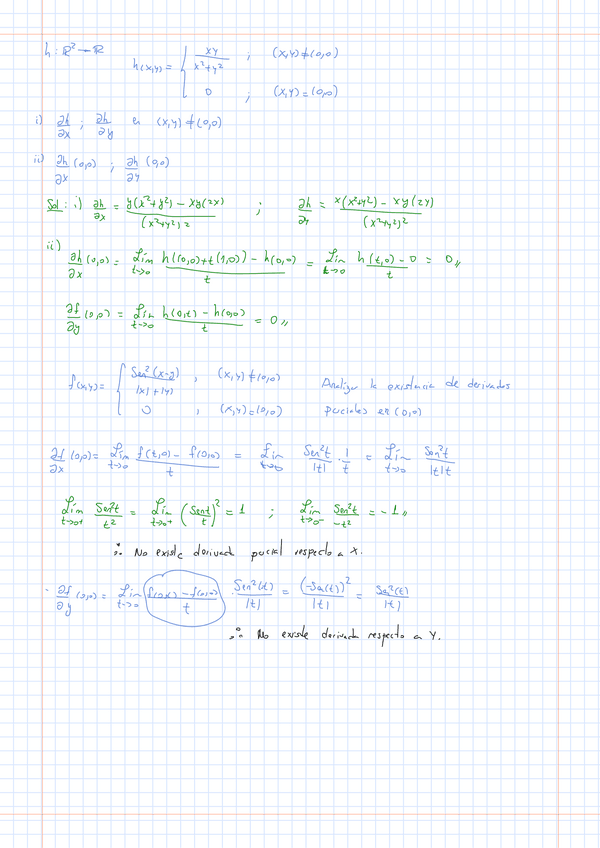 h : ℝ² → ℝ
h(x,y) = { xy / (x²+y²) ; (x,y) ≠ (0,0)
0 ; (x,y) = (0,0)
i) ∂h/∂x ; ∂h/∂y en (x,y) ≠ (0,0)
ii) ∂h/∂x (0,0) ; ∂h/∂y (0,0)
Sol : i) ∂h/∂x = (y(x²+y²) − xy(2x)) / (x²+y²)² ; ∂h/∂y = (x(x²+y²) − xy(2y)) / (x²+y²)²
ii)
∂h/∂x (0,0) = Lím t→0 (h((0,0)+t(1,0)) − h(0,0)) / t = Lím t→0 (h(t,0) − 0) / t = 0,,
∂f/∂y (0,0) = Lím t→0 (h(0,t) − h(0,0)) / t = 0,,
f(x,y) = { Sen²(x−y) / (|x| + |y|) , (x,y) ≠ (0,0) Analizar la existencia de derivadas
0 , (x,y) = (0,0) parciales en (0,0)
∂f/∂x (0,0) = Lím t→0 (f(t,0) − f(0,0)) / t = Lím t→0 Sen²t / |t| · 1/t = Lím t→0 Sen²t / |t|t
Lím t→0⁺ Sen²t / t² = Lím t→0⁺ (Sen t / t)² = 1 ; Lím t→0⁻ Sen²t / −t² = −1,,
∴ No existe derivada parcial respecto a X.
· ∂f/∂y (0,0) = Lím t→0 (f(0,t) − f(0,0)) / t · Sen²(t) / |t| = (−Sen(t))² / |t| = Sen²(t) / |t|
∴ No existe derivada respecto a Y.